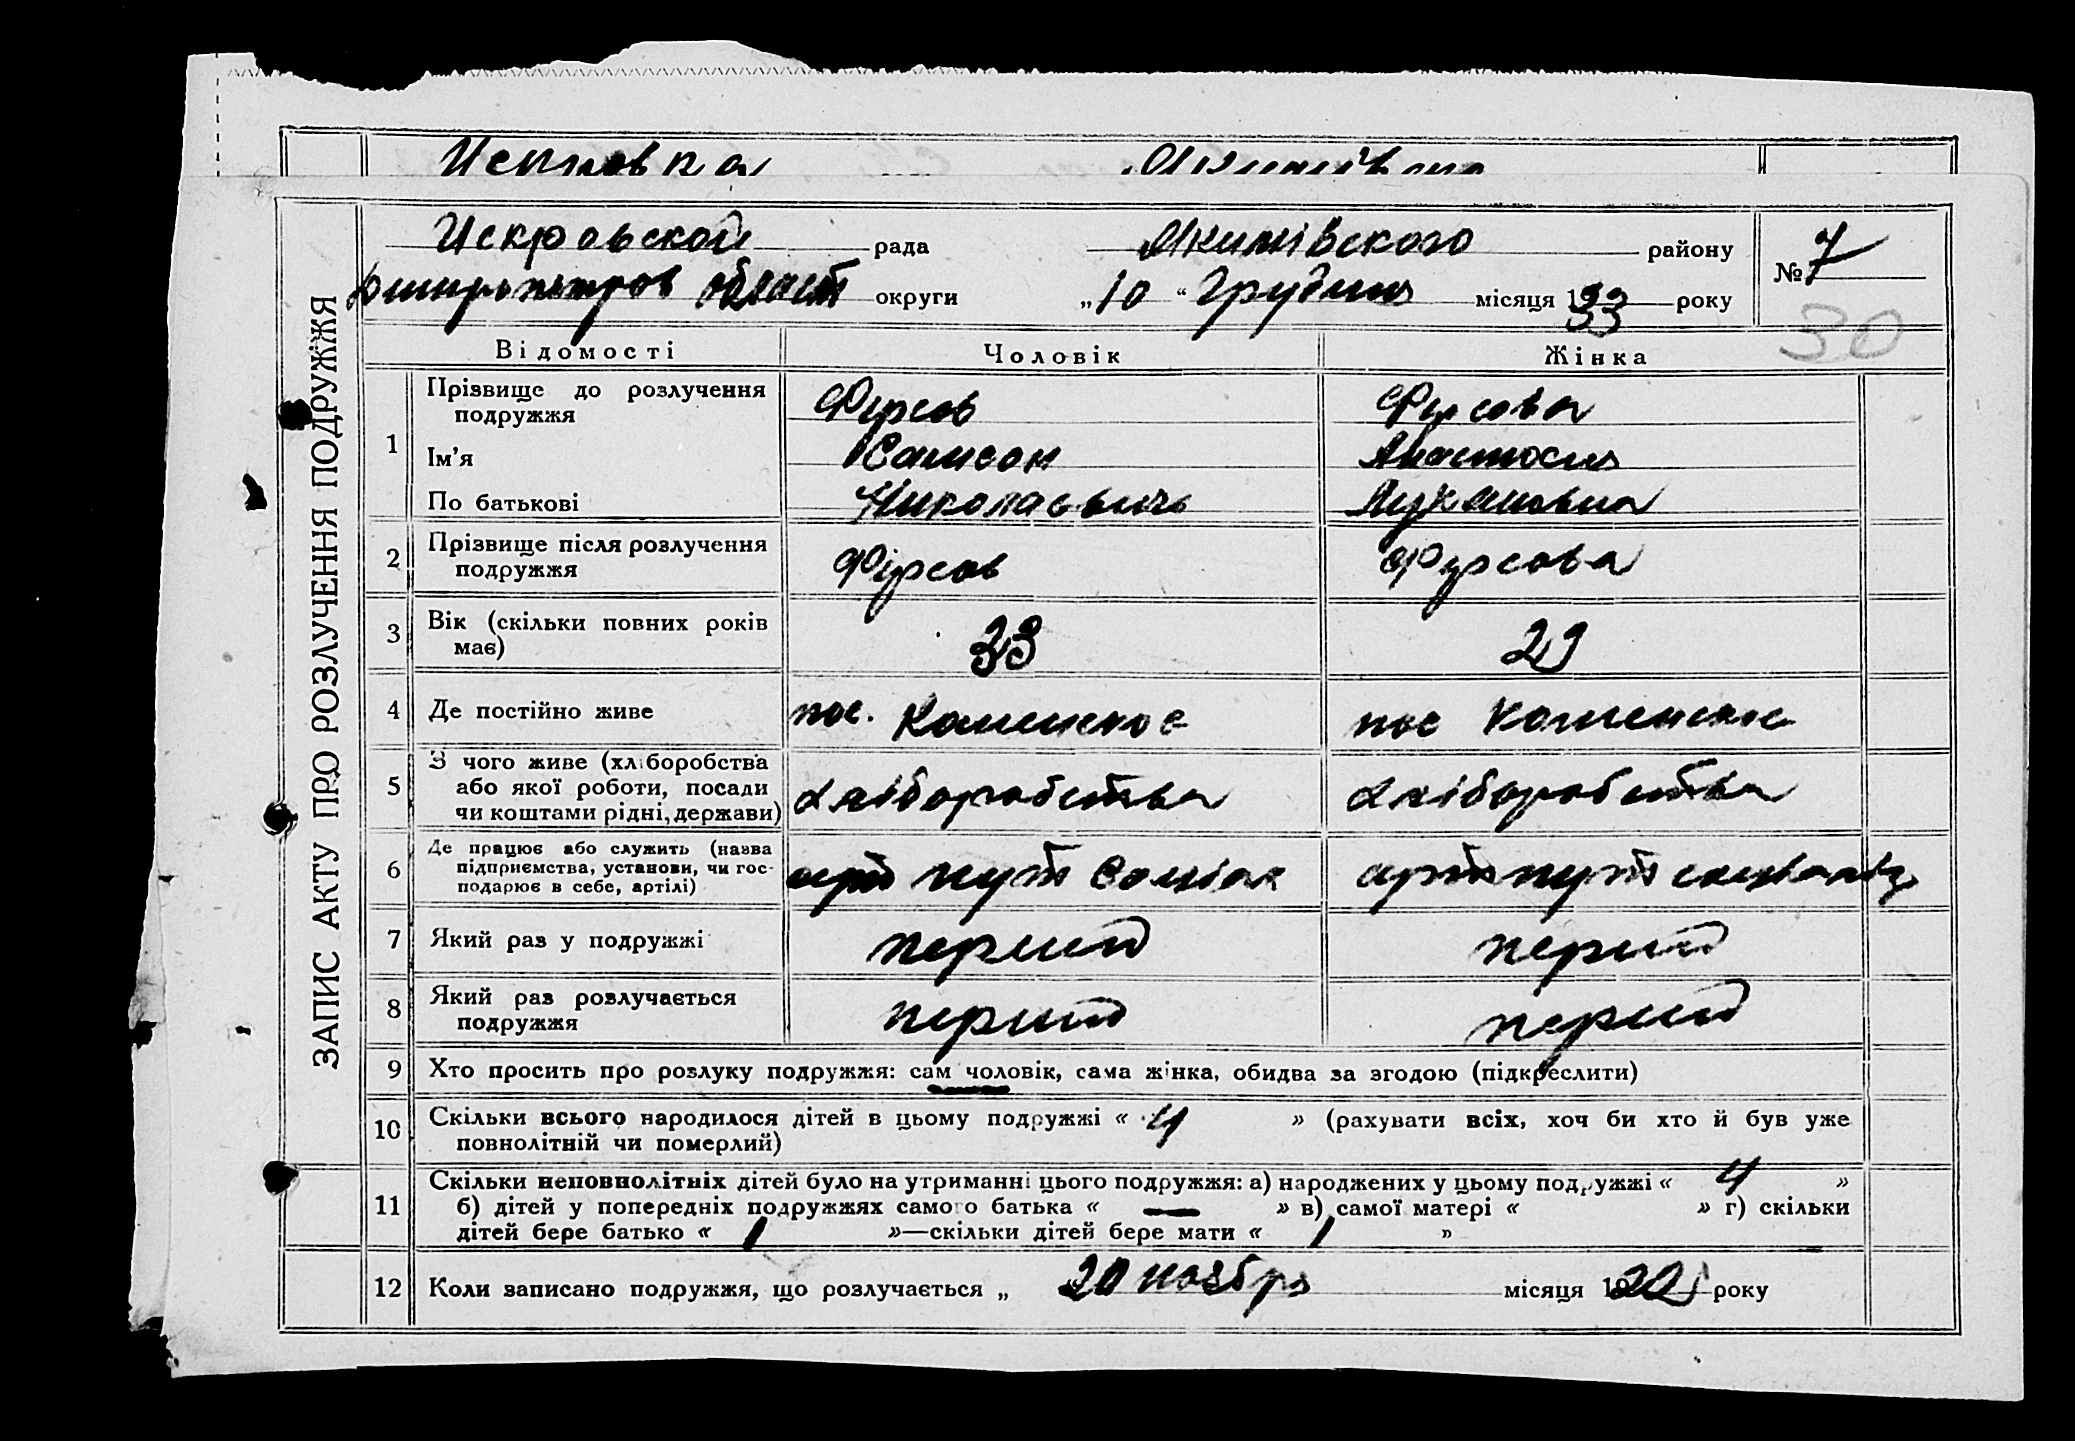 Искровка
ЗАПИС АКТУ ПРО РОЗЛУЧЕННЯ ПОДРУЖЖЯ
Искровской рада Якимівского району № 7
округи „10“ Грудня місяця 1933 року
30
Відомості Чоловік Жінка
1 Прізвище до розлучення подружжя Фірсов Фірсова
Ім’я Самсон Анастасия
По батькові Николаевичь Лукашовна
2 Прізвище після розлучення подружжя Фірсов Фірсова
3 Вік (скільки повних років має) 33 29
4 Де постійно живе пос. Каменское пос Каменское
5 З чого живе (хліборобства або якої роботи, посади чи коштами рідні, держави) хліборобства хліборобства
6 Де працює або служить (назва підприємства, установи, чи господарює в себе, артілі) арт путь арт путь
7 Який раз у подружжі перший перший
8 Який раз розлучається подружжя перший перший
9 Хто просить про розлуку подружжя: сам чоловік, сама жінка, обидва за згодою (підкреслити)
10 Скільки всього народилося дітей в цьому подружжі « 4 » (рахувати всіх, хоч би хто й був уже
повнолітній чи померлий)
11 Скільки неповнолітніх дітей було на утриманні цього подружжя: а) народжених у цьому подружжі « 4 »
б) дітей у попередніх подружжях самого батька « — » в) самої матері « » г) скільки
дітей бере батько « 1 »—скільки дітей бере мати « 1 »
12 Коли записано подружжя, що розлучається „ 20 ноября місяця року